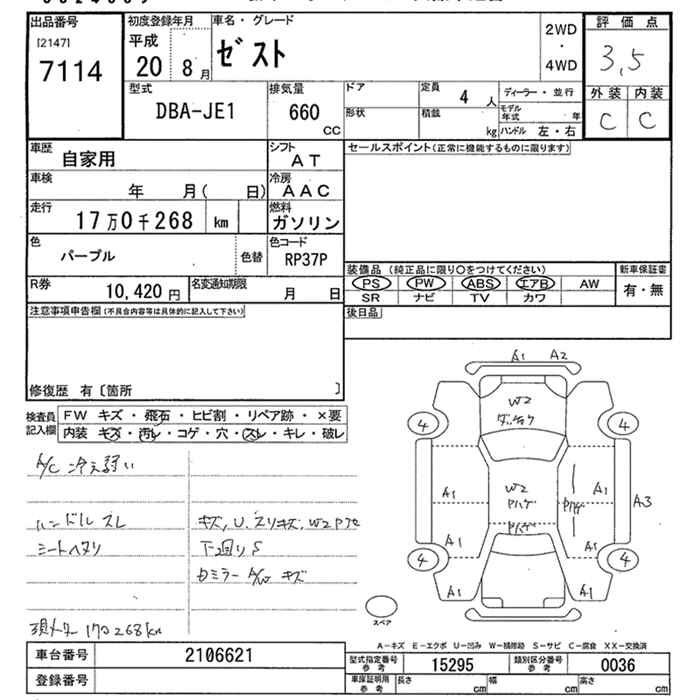 出品番号
[2147]
7114
初度登録年月
平成
20 8月
車名・グレード
ゼスト
2WD
・
4WD
評価点
3,5
外装 内装
C C
型式
DBA-JE1
排気量
660
CC
ドア
定員
4 人
ディーラー・並行
形状
積載
kg
モデル年式 年
ハンドル 左・右
車歴
自家用
シフト
AT
セールスポイント(正常に機能するものに限ります)
車検
年 月( 日)
冷房
AAC
走行
17万0千268 km
燃料
ガソリン
色
パープル
色替
色コード
RP37P
装備品 (純正品に限り○をつけてください)
新車保証書
PS PW ABS エアB AW
有・無
SR ナビ TV カワ
R券
10,420円
名変通知期限
月 日
後日品
注意事項申告欄(不具合内容等は具体的に記入して下さい)
修復歴 有〔箇所 〕
検査員
記入欄
FW キズ・飛石・ヒビ割・リペア跡・×要
内装 キズ・汚レ・コゲ・穴・スレ・キレ・破レ
A/C 冷え弱い
ハンドルスレ
シートヘタリ
キズ,U,スリキズ,W2
下廻りS
A1 A2
W2
4 4
A1
W2
Pハゲ
Pハゲ
Pハゲ
A1
A3
A1 A1
4 4
A1 A1
スペア
A-キズ E-エクボ U-凹み W-補修跡 S-サビ C-腐食 XX-交換済
車台番号
2106621
型式指定番号
参考
15295
類別区分番号
参考
0036
登録番号
車庫証明用
参考
長さ cm
幅 cm
高さ cm